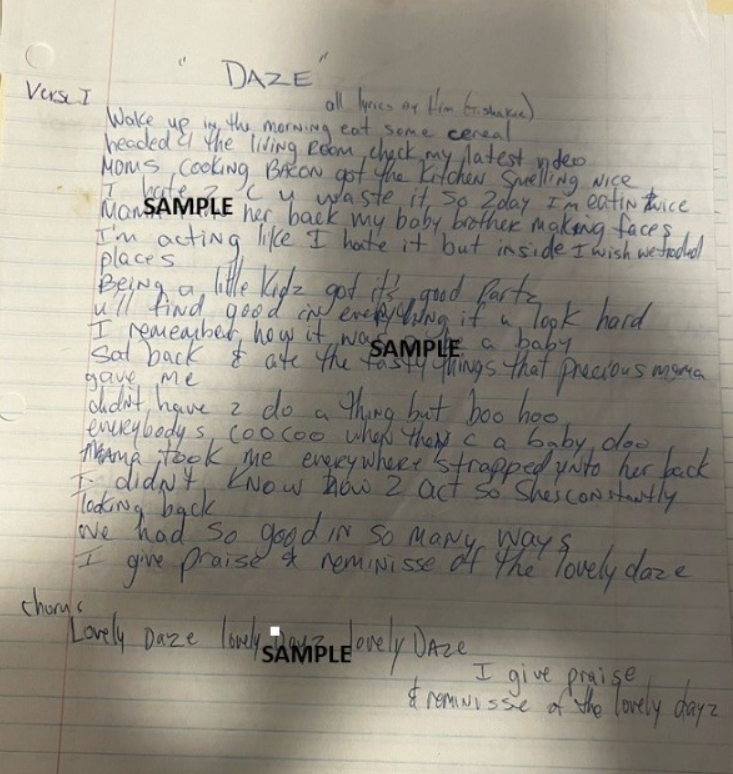 "DAZE"
Verse I
all lyrics by Him
Wake up in the morning eat some cereal
headed 2 the living Room check my latest video
MOMS COOKING BACON got the kitchen smelling NICE
I hate 2 C u waste it so 2day I'm eatin twice
SAMPLE
her back my baby brother making faces
I'm acting like I hate it but inside I wish we traded
places
Being a little Kidz got it's good Partz
u'll find good in everything if u look hard
I remember how it was a baby
SAMPLE
Sat back & ate the tasty things that precious mama
gave me
didn't have 2 do a thing but boo hoo
everybodys coocoo when they c a baby doo
Mama took me everywhere strapped unto her back
I didn't know how 2 act so shes constantly
looking back
we had so good in so many ways
I give praise & reminisse of the lovely daze
chorus
Lovely Daze lovely Dayz lovely Daze
SAMPLE
I give praise
& reminisse of the lovely dayz